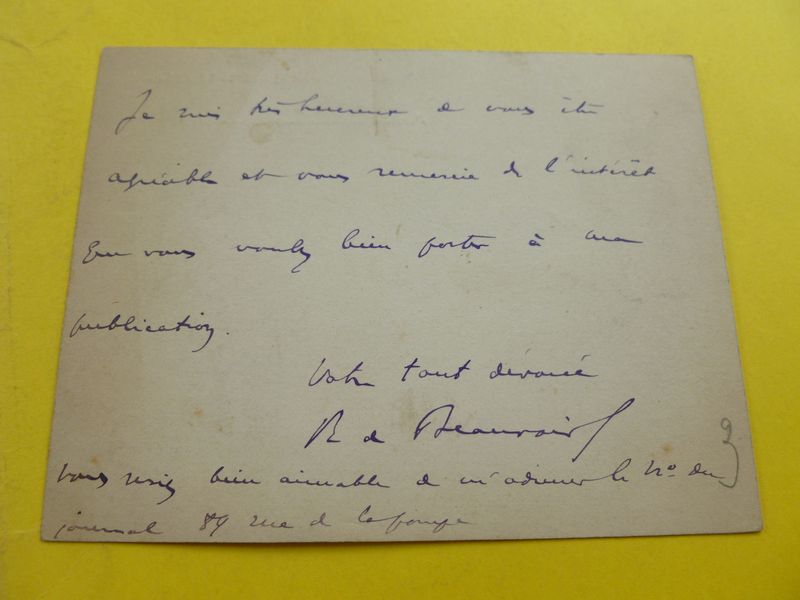 Je suis très heureux de vous être
agréable et vous remercie de l'intérêt
que vous voulez bien porter à ma
publication.
Votre tout dévoué
R de Beauvoir
Vous seriez bien aimable de m'adresser le No du
journal 89 rue de la pompe